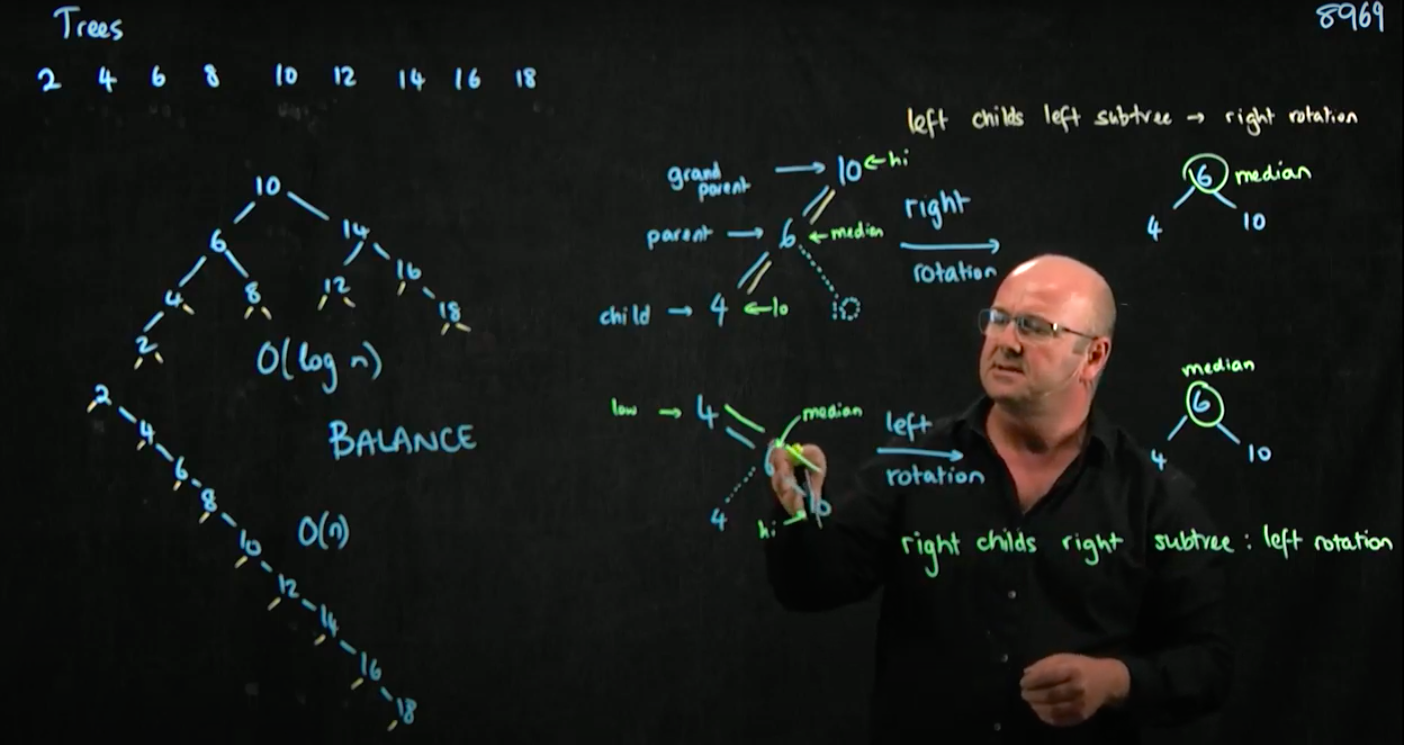 Trees
8969
2 4 6 8 10 12 14 16 18
10
6 14
4 8 12 16
2 18
O(log n)
BALANCE
2
4
6
8
10
12
14
16
18
O(n)
left childs left subtree → right rotation
grand parent → 10 ← hi
parent → 6 ← median
child → 4 ← lo 10
right
rotation
6 median
4 10
low → 4 median
6
4 10
hi
left
rotation
median
6
4 10
right childs right subtree : left rotation